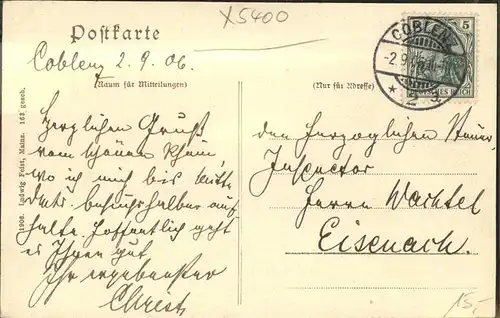 X5400
Postkarte
Coblenz 2.9.06.
(Raum für Mitteilungen)
(Nur für Adresse)
COBLENZ
-2.9.
* 2 d
5
DEUTSCHES REICH
1906. Ludwig Feist, Mainz. 163 gesch.
Herzlichen Gruß
vom schönen Rhein,
wo ich mich bis Mitte
besuchshalber auf
halte. Hoffentlich geht
es Ihnen gut
Ihr ergebenster
Christ
den Herzoglichen Steuer
Inspector
Herrn Wachtel
Eisenach.
15,-